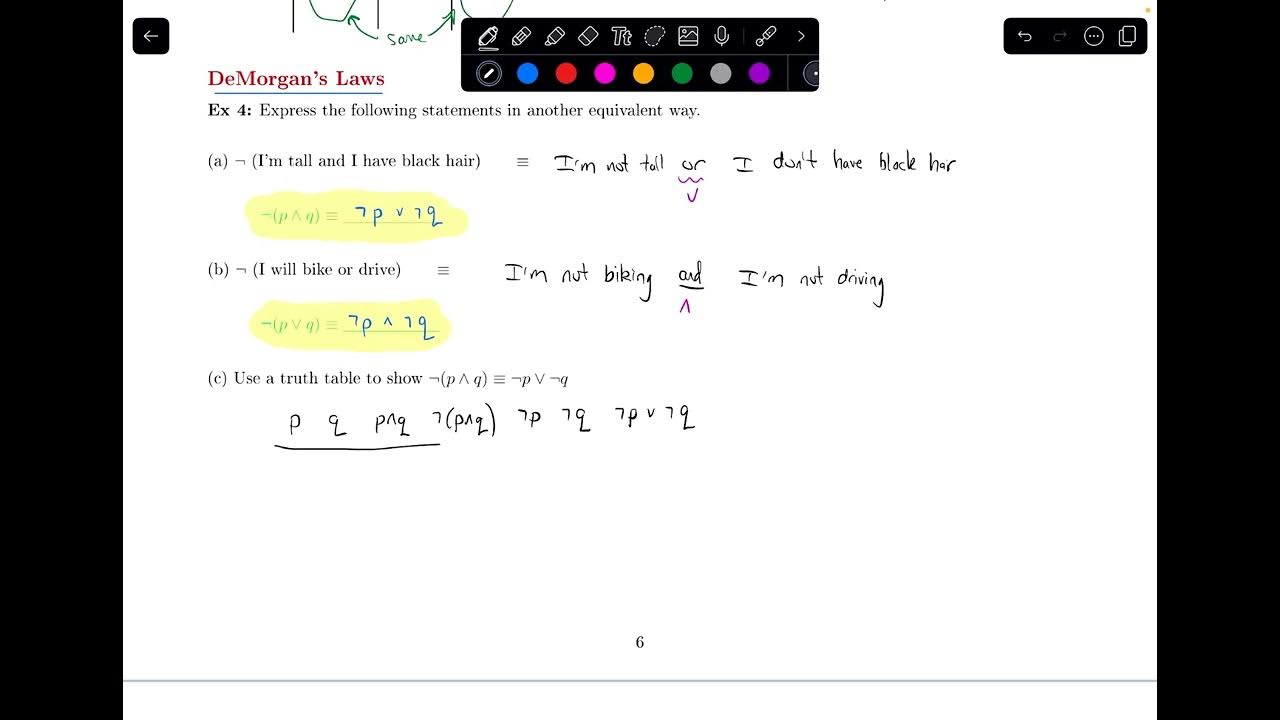 same
Tt
DeMorgan's Laws
Ex 4: Express the following statements in another equivalent way.
(a) ¬ (I'm tall and I have black hair) ≡ I'm not tall or I don't have black har
∨
¬(p ∧ q) ≡ ¬p ∨ ¬q
(b) ¬ (I will bike or drive) ≡ I'm not biking and I'm not driving
∧
¬(p ∨ q) ≡ ¬p ∧ ¬q
(c) Use a truth table to show ¬(p ∧ q) ≡ ¬p ∨ ¬q
p q p∧q ¬(p∧q) ¬p ¬q ¬p ∨ ¬q
6